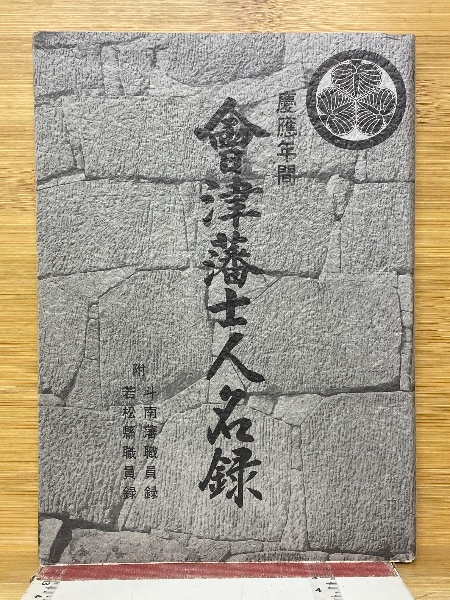 慶應年間
會津藩士人名録
附 斗南藩職員録
若松縣職員録